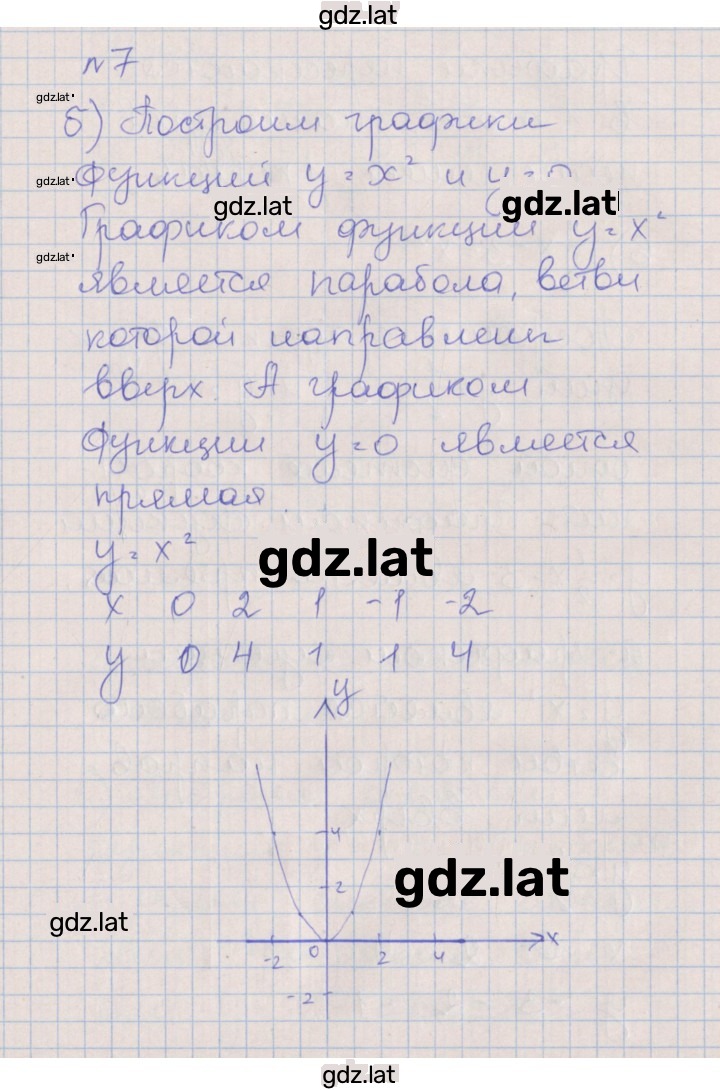 gdz.lat
n 7
gdz.lat
б) Построим графики
gdz.lat
функций y = x² и y = 0
gdz.lat
gdz.lat
Графиком функции y = x²
gdz.lat
является парабола, ветви
которой направлены
вверх. А графиком
функции y = 0 является
прямая.
y = x²
gdz.lat
x 0 2 1 -1 -2
y 0 4 1 1 4
y
4
gdz.lat
2
gdz.lat
-2 0 2 4 x
-2
gdz.lat